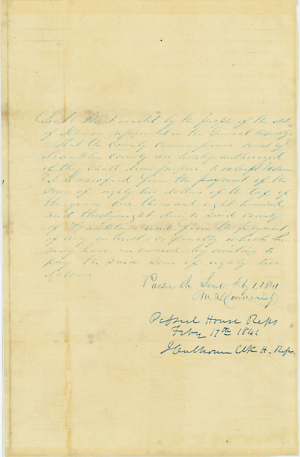 Be it enacted by the people of the State
of Illinois, represented in the General Assembly
That the County Commissioners Court of
Franklin County are hereby authorized
of the
from the payment of the
sum of eighty two dollars of the tax of
the year one thousand eight hundred
and thirty eight due to said county
of Franklin and from the payment
of any interest or penalty which he
may have incurred by omitting to
pay the said sum of eighty two
dollars
Passed the Senate Feby 1841
Passed House Reps
Feby 17th 1841
J Calhoun Clk H. Reps.